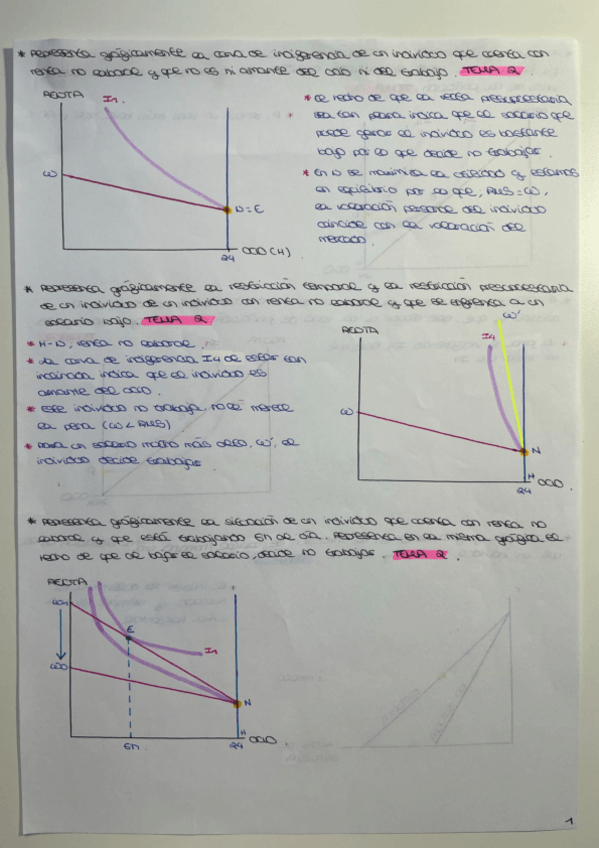 * Representa gráficamente la curva de indiferencia de un individuo que cuenta con
renta no laboral y que no es ni amante del ocio ni del trabajo. TEMA 2.
RENTA
I1.
W
N=E
OCIO (H)
24
* El hecho de que la recta presupuestaria
sea tan plana indica que el salario que
puede ganar el individuo es bastante
bajo por lo que decide no trabajar.
* En N se maximiza la utilidad y estamos
en equilibrio por lo que, RMS = W,
la valoración personal del individuo
coincide con la valoración del
mercado.
* Representa gráficamente la restricción temporal y la restricción presupuestaria
de un individuo de un individuo con renta no laboral y que se enfrenta a un
salario bajo. TEMA 2
* H-N, renta no laboral.
* La curva de indiferencia I1 de estar tan
inclinada indica que el individuo es
amante del ocio.
* Este individuo no trabaja, no le merece
la pena (W < RMS)
* Para un salario mucho más alto, W', el
individuo decide trabajar
RENTA
W'
I1
W
N
H
OCIO.
24
* Representa gráficamente la situación de un individuo que cuenta con renta no
laboral y que está trabajando en el día. Representa en la misma gráfica el
hecho de que al bajar el salario, decide no trabajar. TEMA 2.
RENTA
W1
E
I1
W0
N
H
OCIO.
24
1